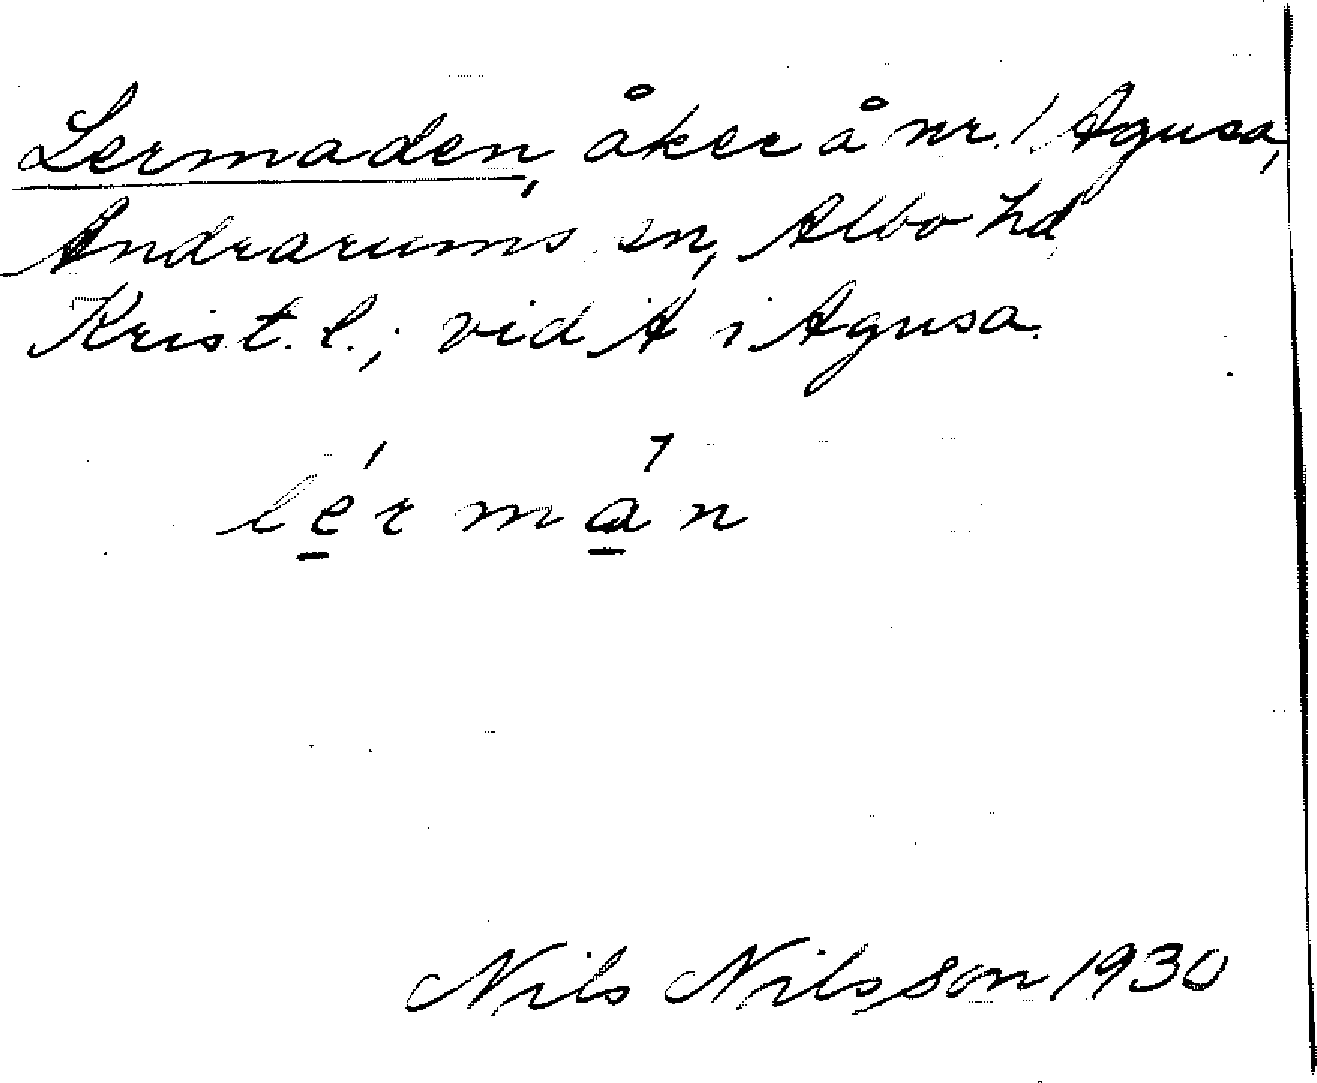 Lermaden, åker å nr 1 Agusa,
Andrarums sn, Albo hd
Krist. l.; vid A i Agusa.
lérmàn
Nils Nilsson 1930